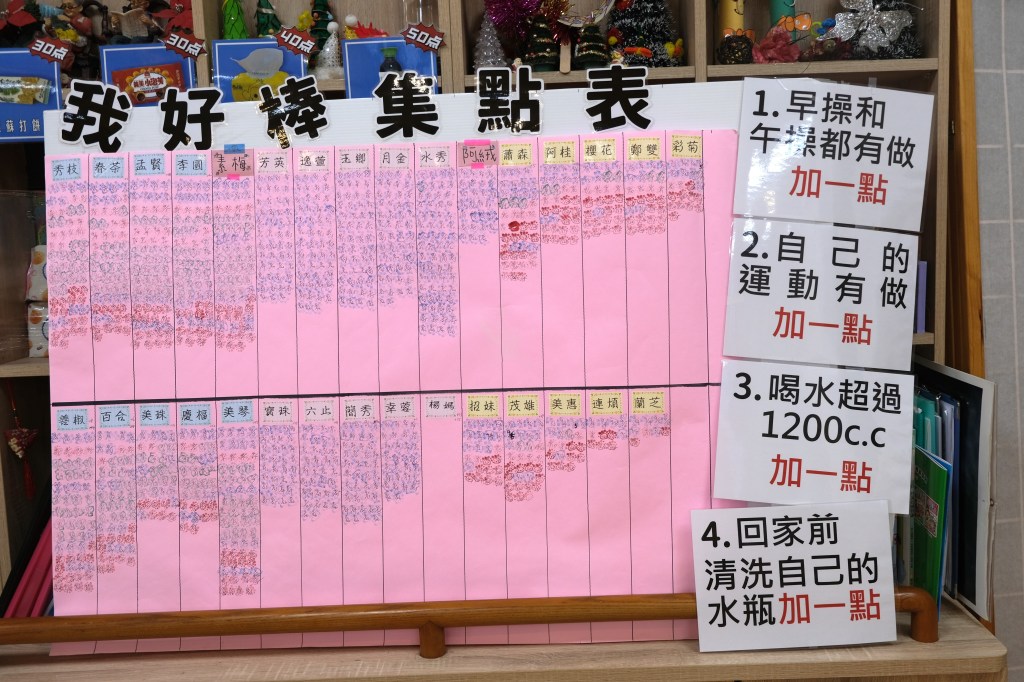 30点
30点
40点
50点
蘇打餅
我好棒集點表
秀枝
春茶
孟賢
李圓
素梅
芳英
逸萱
玉鄉
月金
水秀
蕭森
阿桂
櫻花
鄭雙
彩菊
善椒
百合
美珠
慶福
美琴
寶珠
六止
簡秀
幸蓉
楊媽
招妹
茂雄
美惠
連煩
蘭芝
1.早操和
午操都有做
加一點
2.自己的
運動有做
加一點
3.喝水超過
1200c.c
加一點
4.回家前
清洗自己的
水瓶加一點